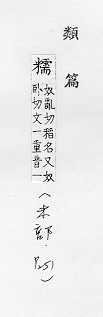 類篇
糯
奴亂切稻名又奴
卧切文一重音一
(米部·P251)